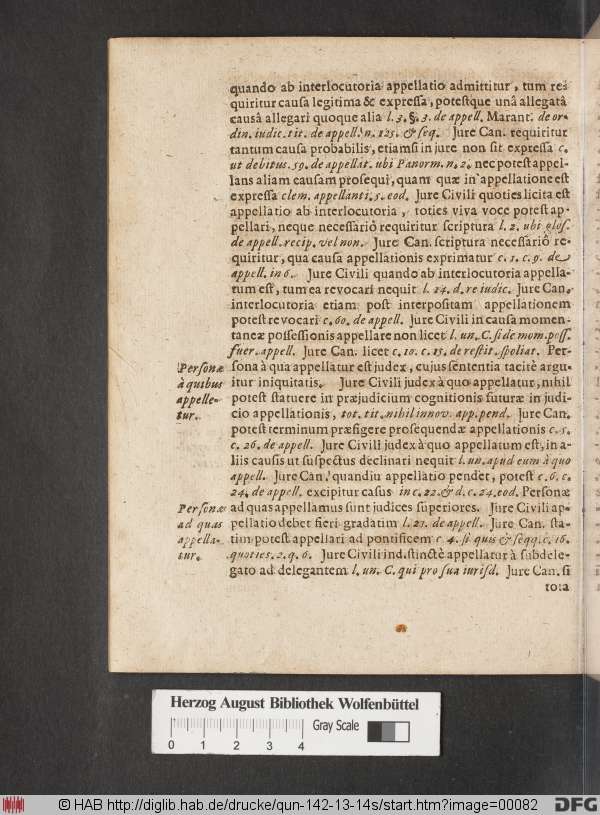 quando ab interlocutoria appellatio admittitur, tum re-
quiritur causa legitima & expressa, potestque unâ allegatâ
causâ allegari quoque alia l. 3. §. 3. de appell. Marant. de or-
din. iudic. tit. de appell. n. 125. & seq. Jure Can. requiritur
tantum causa probabilis, etiamsi in jure non sit expressa c.
ut debitus. 59. de appellat. ubi Panorm. n. 2. nec potest appel-
lans aliam causam prosequi, quam quæ in appellatione est
expressa clem. appellanti. 5. eod. Jure Civili quoties licita est
appellatio ab interlocutoria, toties viva voce potest ap-
pellari, neque necessariò requiritur scriptura l. 2. ubi glos.
de appell. recip. vel non. Jure Can. scriptura necessariò re-
quiritur, qua causa appellationis exprimatur c. 1. c. 9. de
appell. in 6. Jure Civili quando ab interlocutoria appella-
tum est, tum ea revocari nequit l. 14. d. re iudic. Jure Can.
interlocutoria etiam post interpositam appellationem
potest revocari c. 60. de appell. Jure Civili in causa momen-
taneæ possessionis appellare non licet l. un. C. si de mom. poss.
fuer. appell. Jure Can. licet c. 10. c. 15. de restit. spoliat. Per-
sona à qua appellatur est judex, cujus sententia tacitè argu-
itur iniquitatis. Jure Civili judex à quo appellatur, nihil
potest statuere in præjudicium cognitionis futuræ in judi-
cio appellationis, tot. tit. nihil innov. app. pend. Jure Can.
potest terminum præfigere prosequendæ appellationis c. 5.
c. 26. de appell. Jure Civili judex à quo appellatum est, in a-
liis causis ut suspectus declinari nequit l. un. apud eum à quo
appell. Jure Can. quandiu appellatio pendet, potest c. 6. c.
24. de appell. excipitur casus in c. 22. & d. c. 24. eod. Personæ
ad quas appellamus sunt judices superiores. Jure Civili ap-
pellatio debet fieri gradatim l. 21. de appell. Jure Can. sta-
tim potest appellari ad pontificem c 4. si quis & seqq. c. 16.
quoties. 2. q. 6. Jure Civili indistinctè appellatur à subdele-
gato ad delegantem l. un. C. qui pro sua iurisd. Jure Can. si
tota
Personæ
à quibus
appelle-
tur.
Personæ
ad quas
appella-
tur.
Herzog August Bibliothek Wolfenbüttel
Gray Scale
0 1 2 3 4
© HAB http://diglib.hab.de/drucke/qun-142-13-14s/start.htm?image=00082
DFG